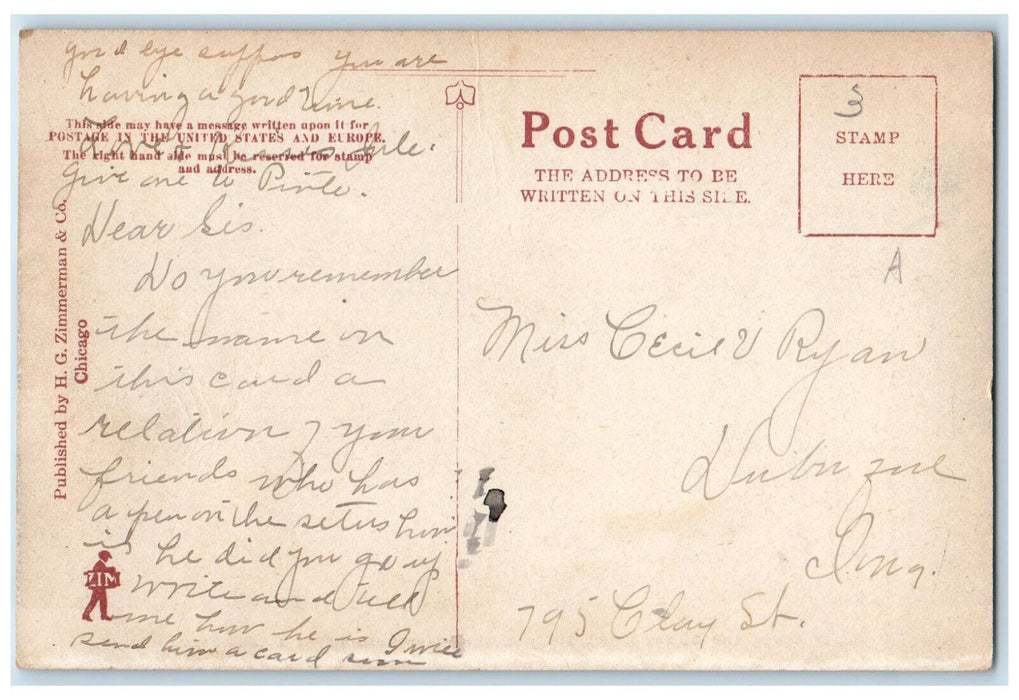 good eye suppos you are
having a good time.
This side may have a message written upon it for
POSTAGE IN THE UNITED STATES AND EUROPE.
The right hand side must be reserved for stamp
and address.
give one to
Dear Sis.
Do you remember
the name on
this card a
relation of your
friends who has
a pen on the how
is he did you go up
write and tell
me how he is I will
send him a card soon
Published by H. G. Zimmerman & Co.
Chicago
ZIM
Post Card
THE ADDRESS TO BE
WRITTEN ON THIS SIDE.
3
STAMP
HERE
A
Miss Cecil V Ryan
Dubuque
Iowa.
795 Clay St.